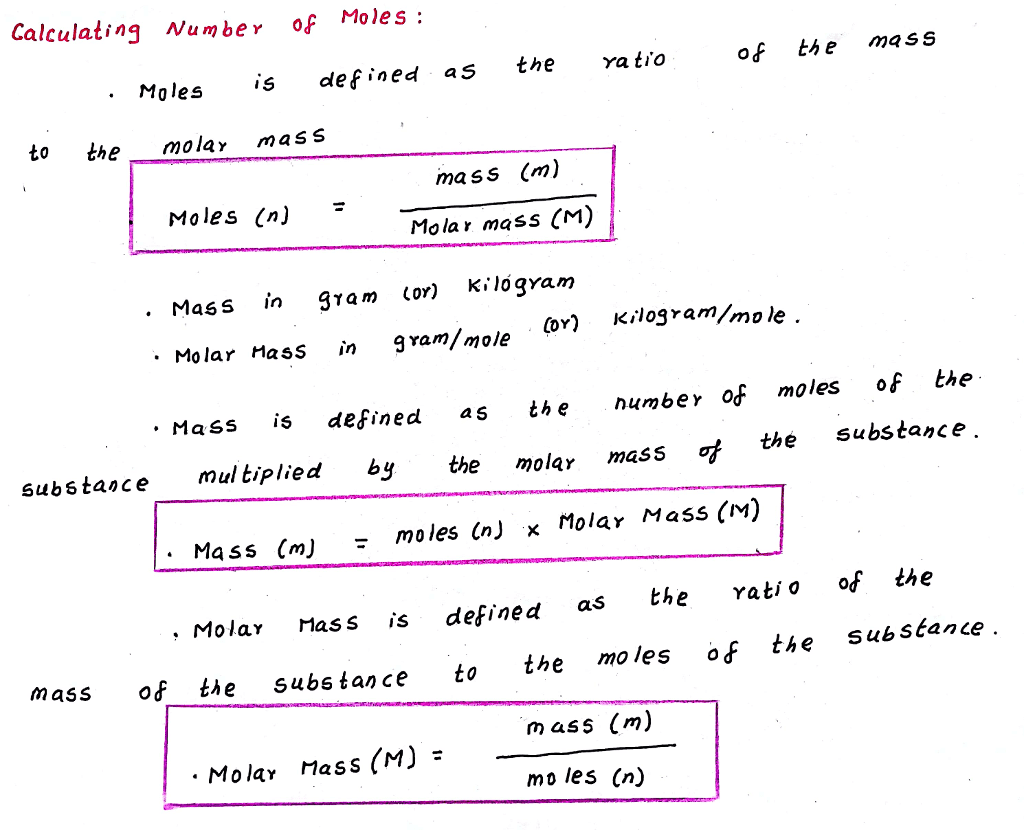 Calculating Number of Moles :
. Moles is defined as the ratio of the mass
to the molar mass
Moles (n) = mass (m) / Molar mass (M)
. Mass in gram (or) Kilogram
. Molar Mass in gram/mole (or) Kilogram/mole .
. Mass is defined as the number of moles of the
substance multiplied by the molar mass of the substance .
. Mass (m) = moles (n) x Molar Mass (M)
. Molar Mass is defined as the ratio of the
mass of the substance to the moles of the substance .
. Molar Mass (M) = mass (m) / moles (n)